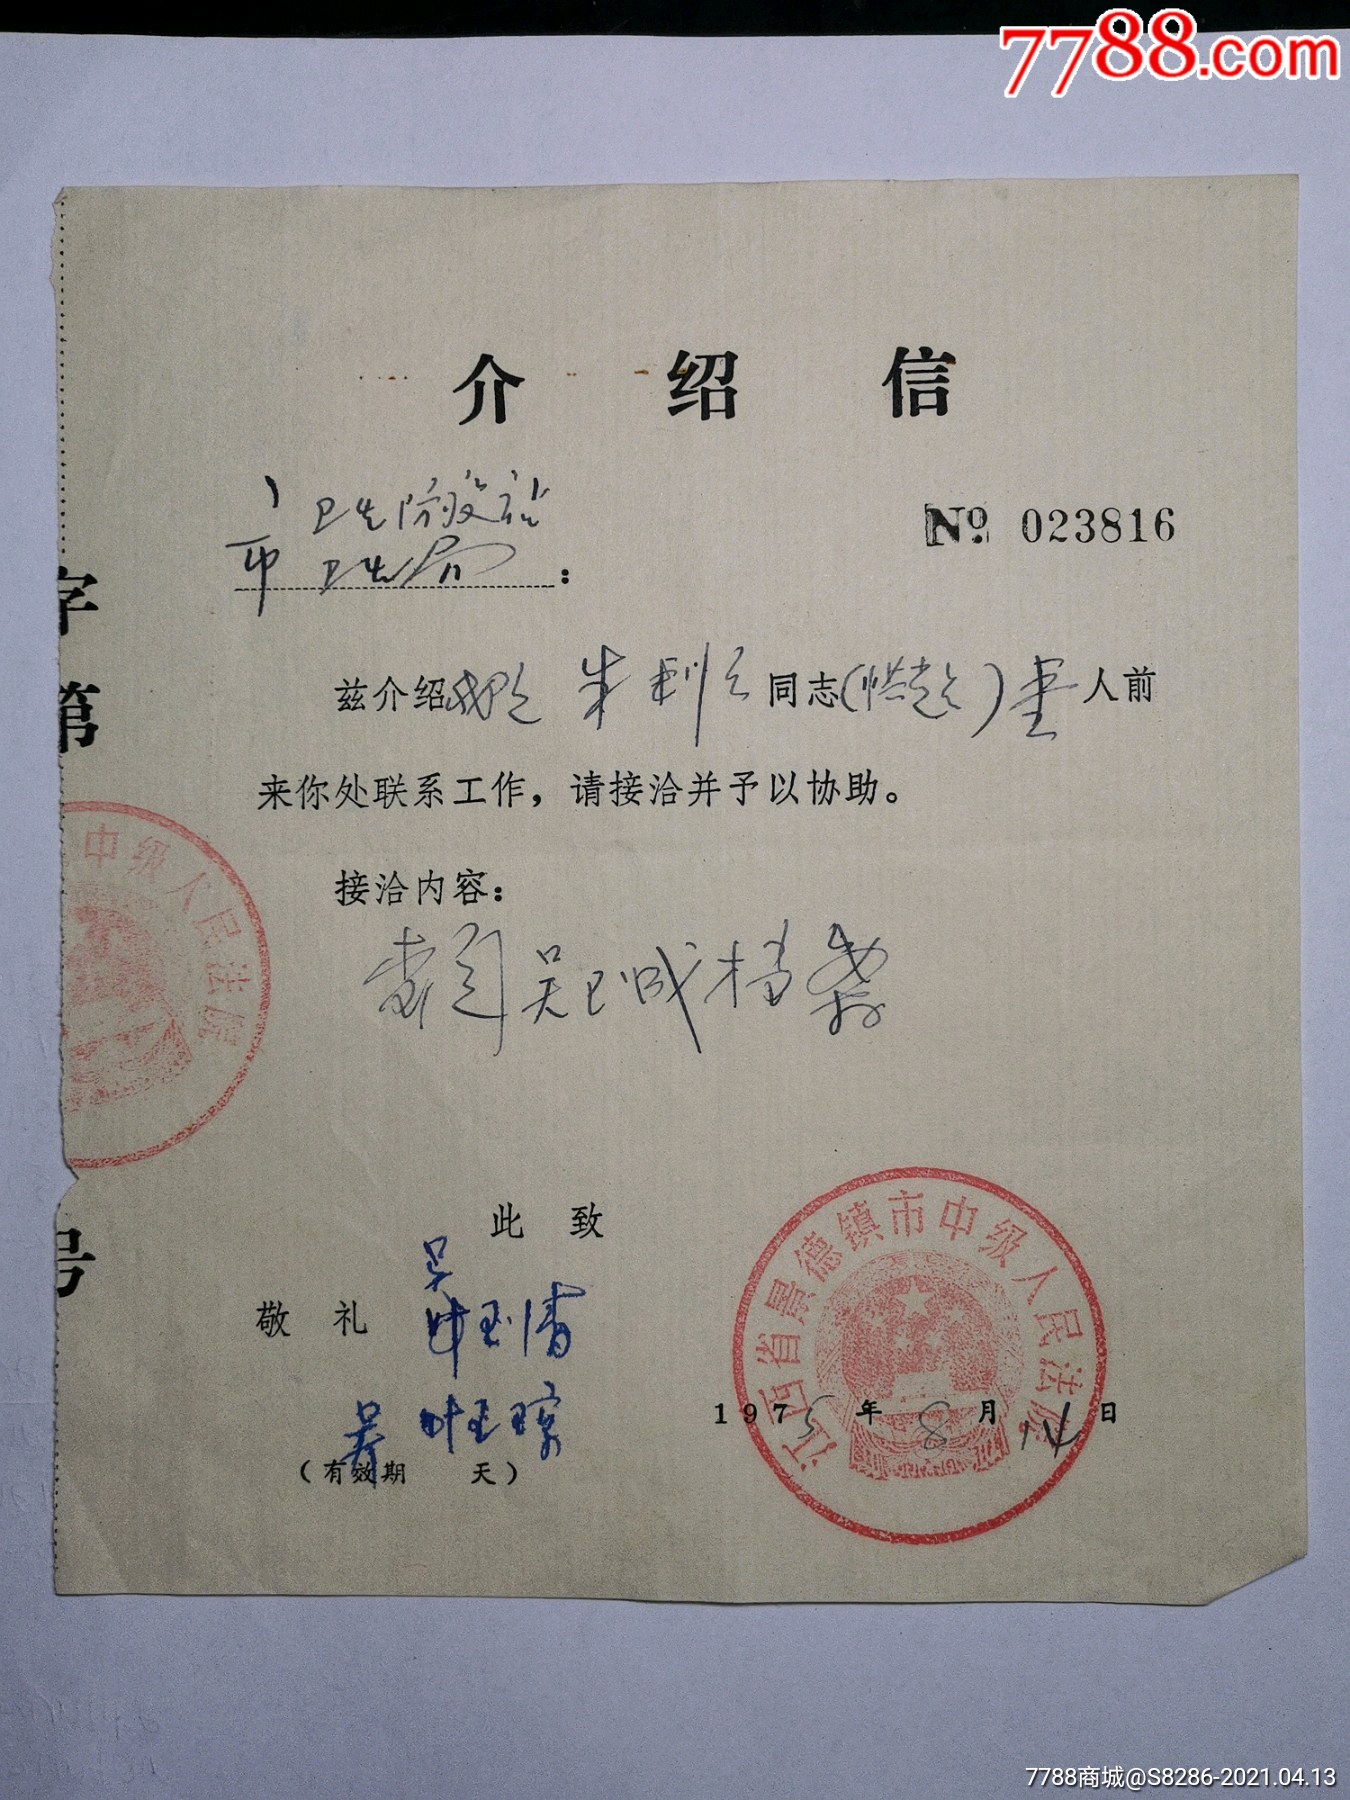 7788.com
介绍信
卫生防疫站
市卫生局：
No. 023816
字第 号
兹介绍我院 朱 同志( )壹人前
来你处联系工作，请接洽并予以协助。
接洽内容：
查阅吴 成档案
此致
敬礼
吴
叶玉清
叶玉琼
(有效期 天)
1975年8月14日
中级人民法院
江西省景德镇市中级人民法院
7788商城@S8286-2021.04.13